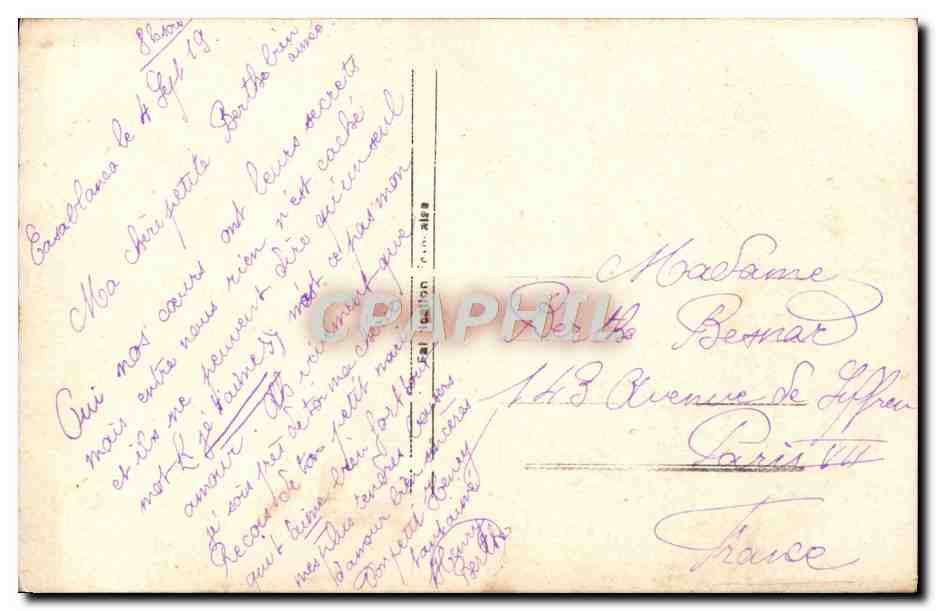 8h soir
Casablanca le 4 Sept 19.
Ma chère petite Berthe bien
aimée
Oui nos cœurs ont leurs secrets
mais entre nous rien n'est caché
et ils ne peuvent dire qu'un seul
mot " je t'aime " n'est ce pas mon
amour. Ah vivement que
j' sois près de toi ma
Reçois de ton petit
qui t'aime bien fort
mes plus tendres baisers
d'amour bien sincères
Ton petit Henry
Henry
Berthe
Fabrication
CPAPHIL
Madame
Berthe Besnard
143 Avenue de Suffren
Paris VII
France